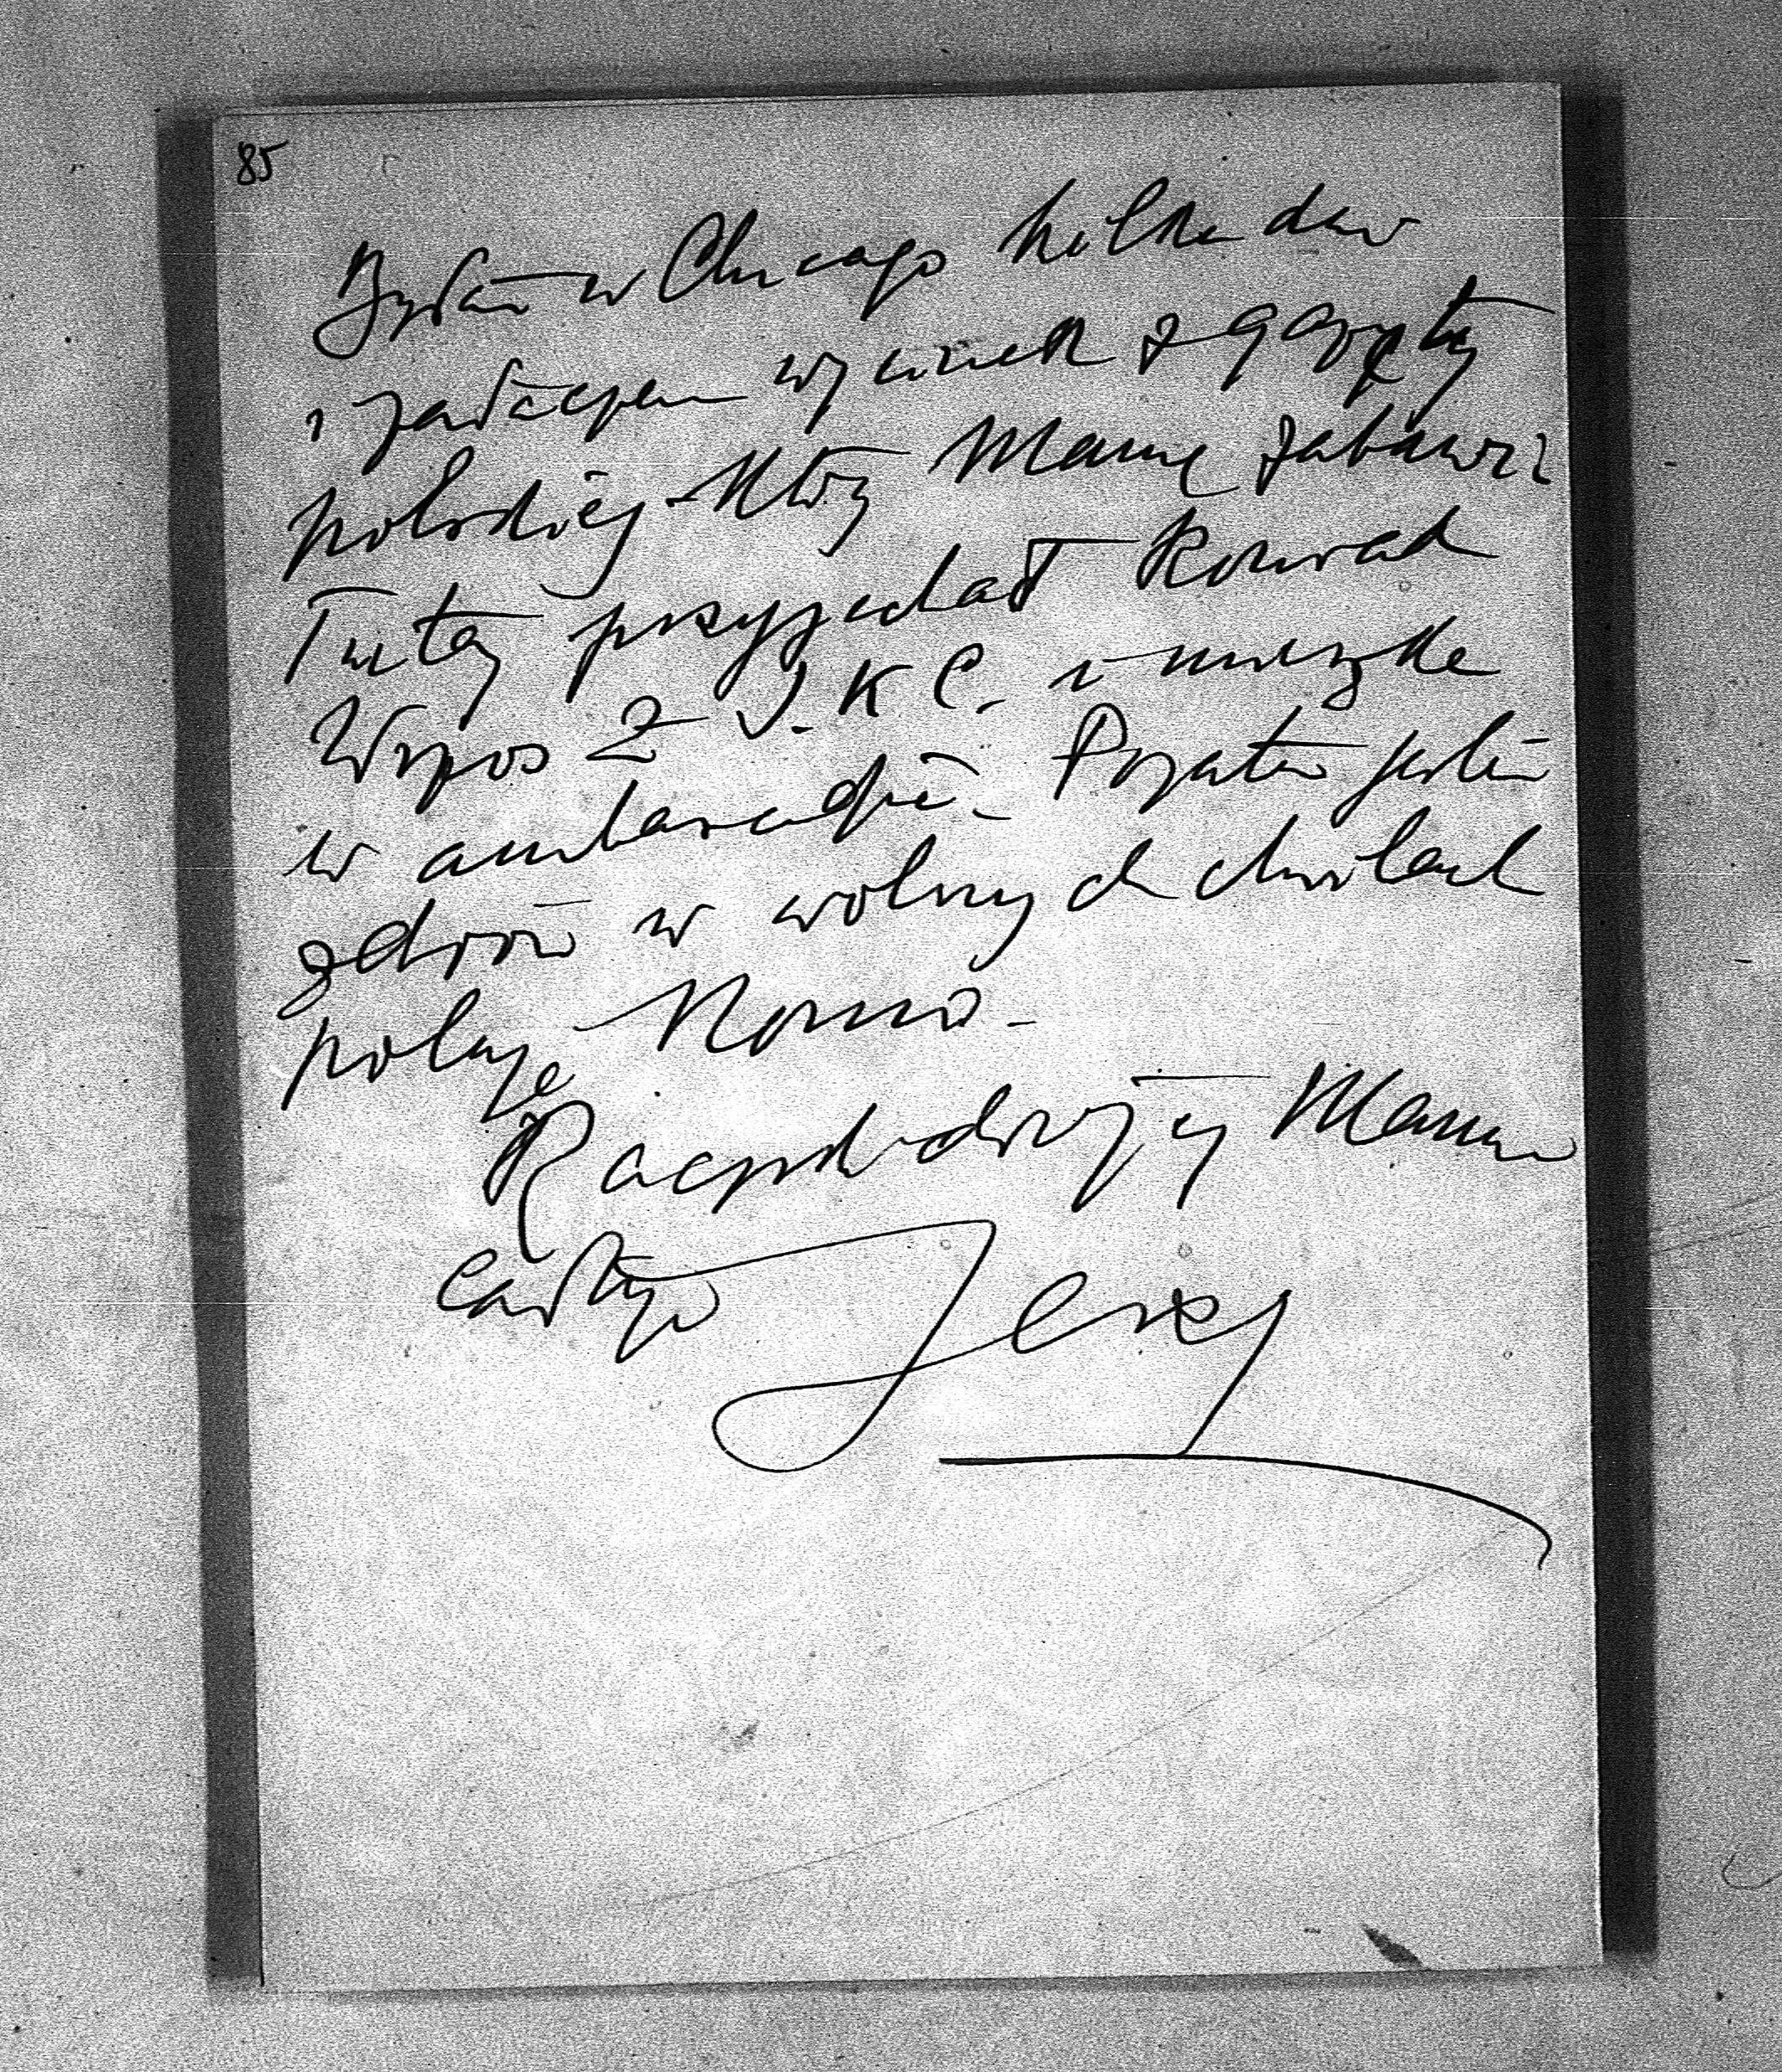 85
Byłem w Chicago kilka dni
i załączam wycinek z gazety
polskiej który Mamę zabawi
Tutaj przyjechał Konrad
Wrzos z I.K.C. i mieszka
w ambasadzie. Pozatem jestem
zdrów w wolnych chwilach
poluję
Rączki drogiej Mamie
całuję Jerzy